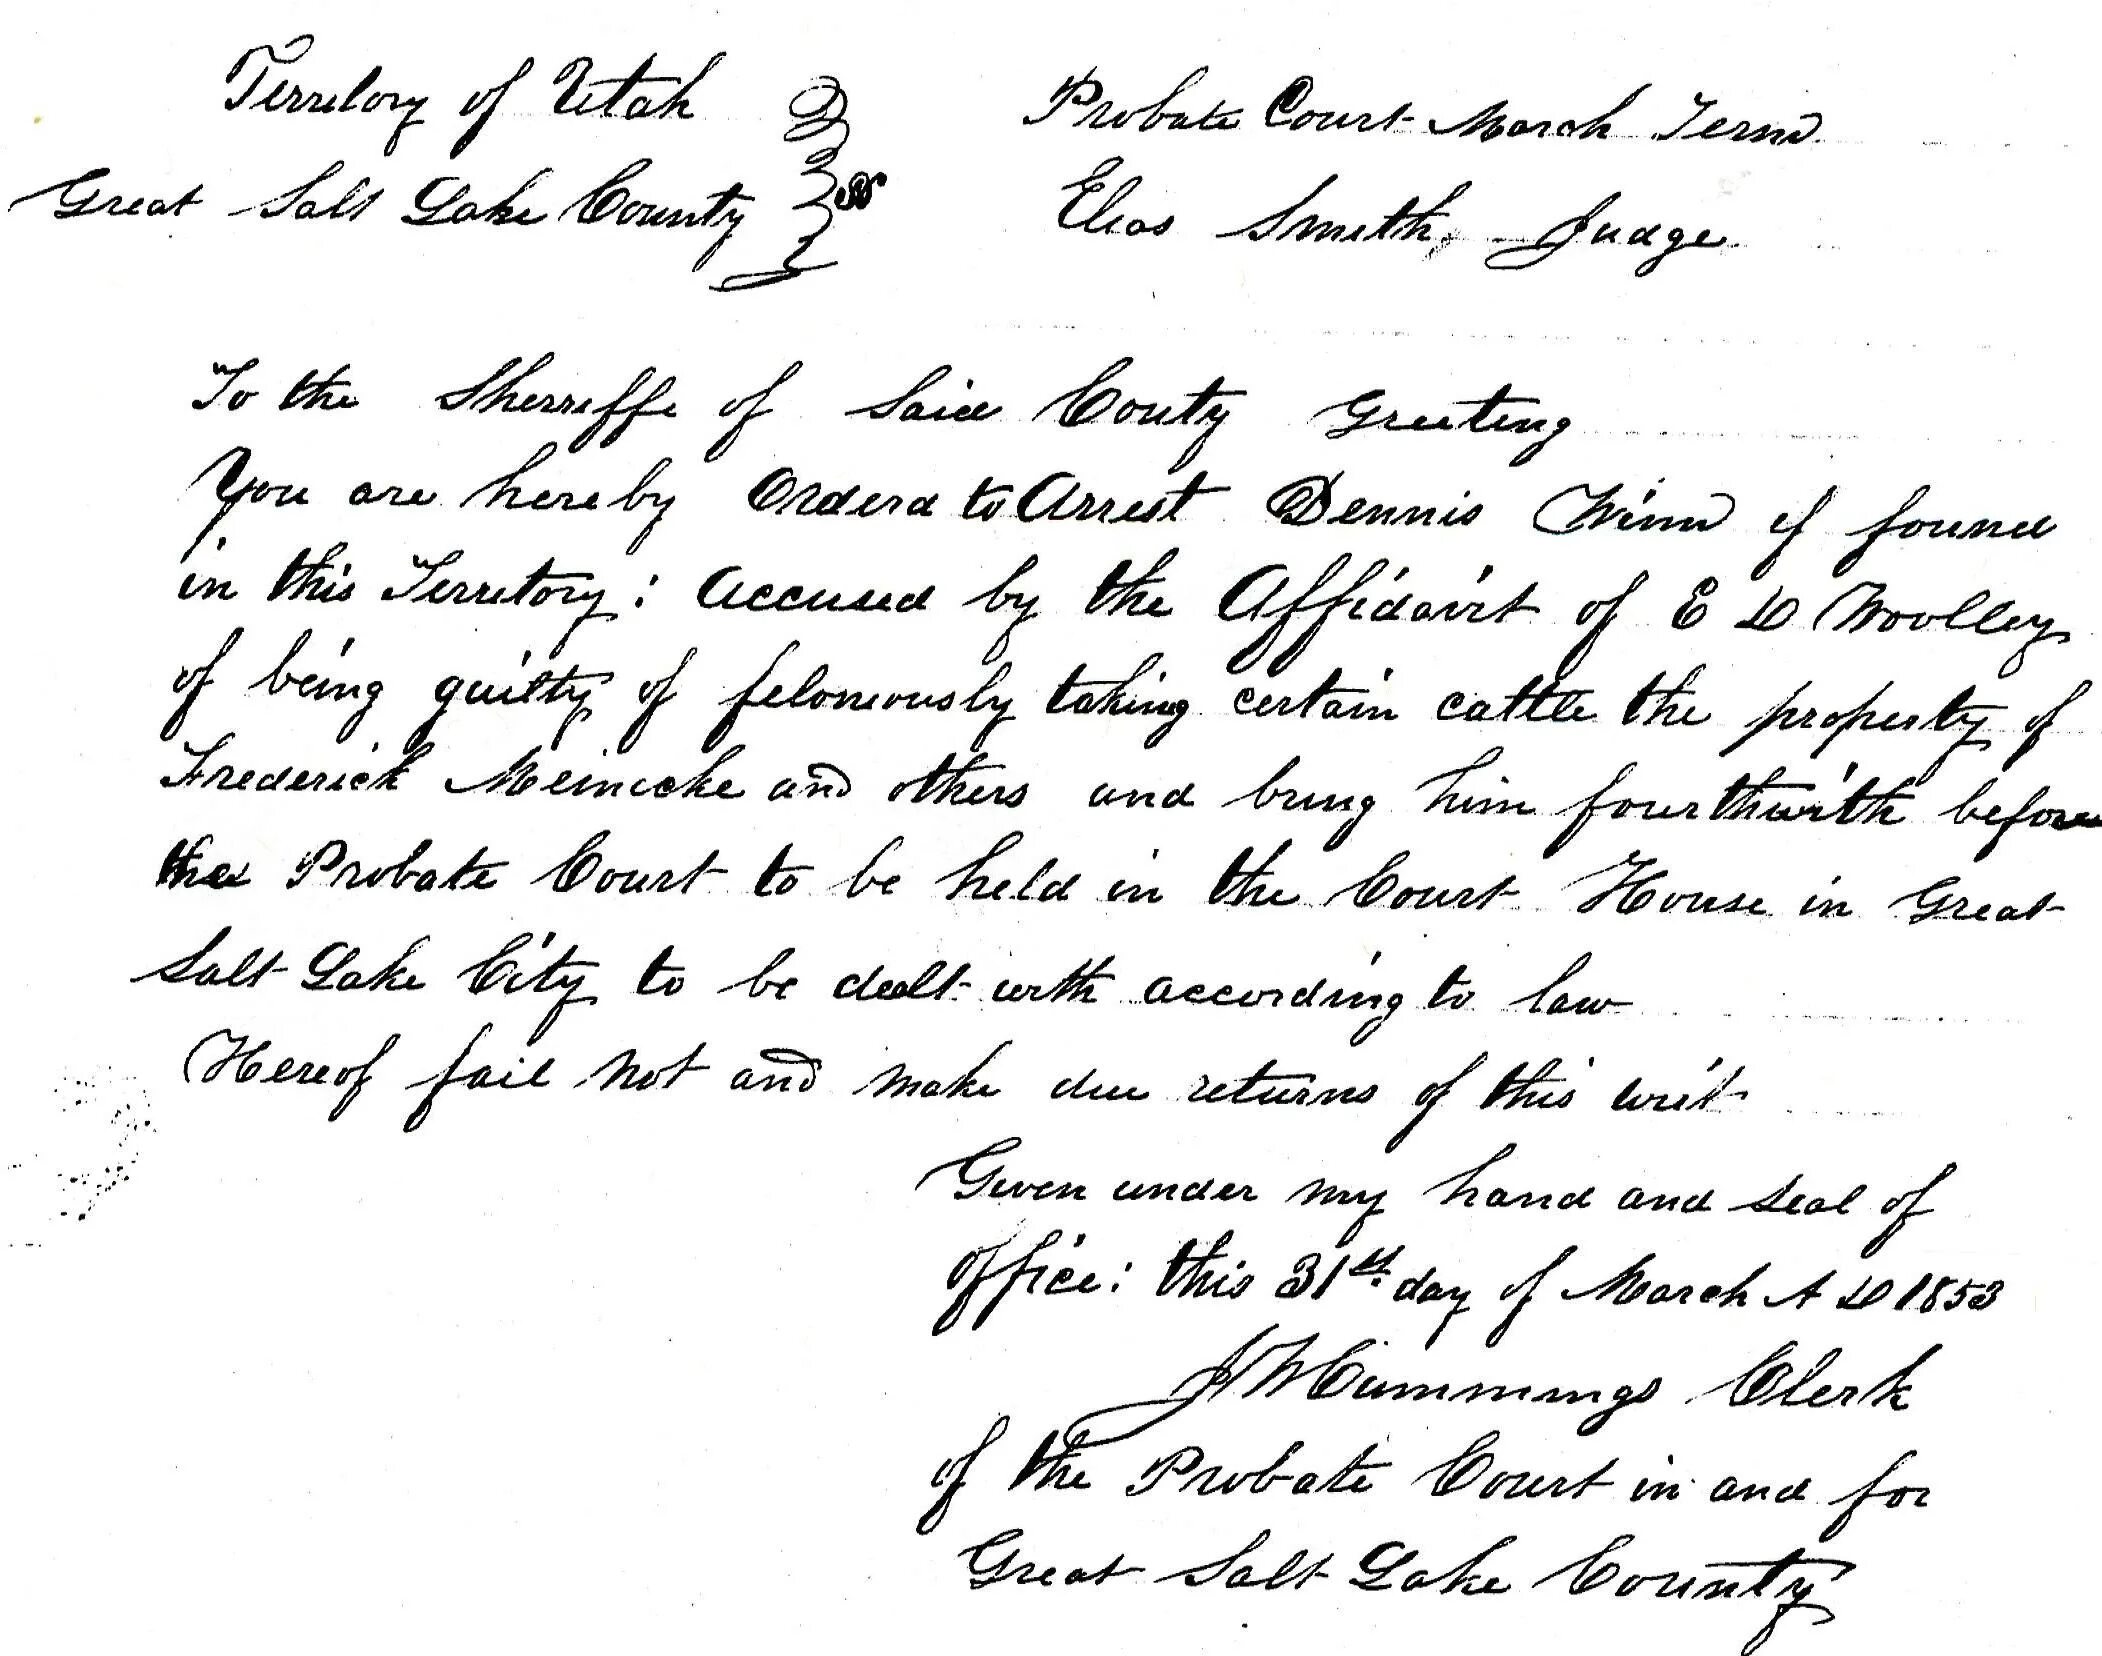 Territory of Utah
Great Salt Lake County ss
Probate Court March Term
Elias Smith, Judge
To the Sherriffe of Said Couty Greeting
You are hereby Orderd to Arrest Dennis Winn if found
in this Territory: Accused by the Affidavit of E D Woolley
of being guilty of feloniously taking certain cattle the property of
Frederick Meinicke and others and bring him fourthwith before
the Probate Court to be held in the Court House in Great
Salt Lake City to be dealt with according to law
Hereof fail not and make due returns of this writ
Given under my hand and seal of
office: this 31st day of March A D 1853
J W Cummings Clerk
of the Probate Court in and for
Great Salt Lake County